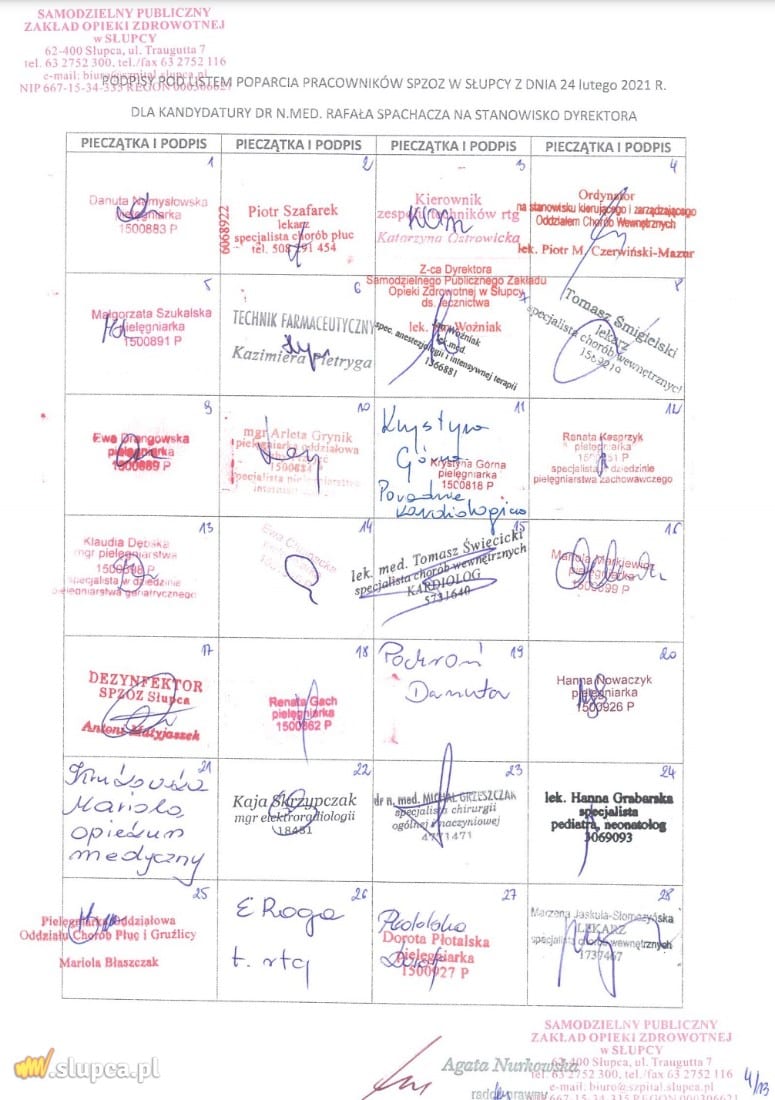 SAMODZIELNY PUBLICZNY
ZAKŁAD OPIEKI ZDROWOTNEJ
w SŁUPCY
62-400 Słupca, ul. Traugutta 7
tel. 63 2752 300, tel./fax 63 2752 116
e-mail: biuro@szpital.slupca.pl
NIP 667-15-34-335 REGON 000306621
PODPISY POD LISTEM POPARCIA PRACOWNIKÓW SPZOZ W SŁUPCY Z DNIA 24 lutego 2021 R.
DLA KANDYDATURY DR N.MED. RAFAŁA SPACHACZA NA STANOWISKO DYREKTORA
PIECZĄTKA I PODPIS PIECZĄTKA I PODPIS PIECZĄTKA I PODPIS PIECZĄTKA I PODPIS
1
Danuta Namysłowska
pielęgniarka
1500883 P
2
Piotr Szafarek
lekarz
specjalista chorób płuc
6068922
3
Kierownik
zespołu techników rtg
Katarzyna Ostrowicka
4
Ordynator
na stanowisku kierującego i zarządzającego
Oddziałem Chorób Wewnętrznych
lek. Piotr M. Czerwiński-Mazur
5
Małgorzata Szukalska
pielęgniarka
1500891 P
6
TECHNIK FARMACEUTYCZNY
Kazimiera Pietryga
7
Z-ca Dyrektora
Samodzielnego Publicznego Zakładu
Opieki Zdrowotnej w Słupcy
ds. lecznictwa
lek. Woźniak
Woźniak
lek. med.
spec. anestezjologii i intensywnej terapii
1366881
8
Tomasz Śmigielski
lekarz
specjalista chorób wewnętrznych
1563219
9
Ewa Drangowska
pielęgniarka
1500889 P
10
mgr Arleta Grynik
pielęgniarka oddziałowa
specjalista pielęgniarstwa
11
Krystyna
Górna
Krystyna Górna
pielęgniarka
1500818 P
Poradnia
kardiologiczna
12
Renata Kasprzyk
pielęgniarka
specjalista w dziedzinie
pielęgniarstwa zachowawczego
13
Klaudia Dębska
mgr pielęgniarstwa
specjalista w dziedzinie
pielęgniarstwa geriatrycznego
14
Ewa
15
lek. med. Tomasz Święcicki
specjalista chorób wewnętrznych
KARDIOLOG
5731640
16
Mariola Maćkiewicz
pielęgniarka
17
DEZYNFEKTOR
SPZOZ Słupca
Antoni Matyjaszek
18
Renata Gach
pielęgniarka
1500862 P
19
Pochroń
Danuta
20
Hanna Nowaczyk
pielęgniarka
1500926 P
21
Mariola
opiekun
medyczny
22
Kaja Skrzypczak
mgr elektroradiologii
18451
23
dr n. med. MICHAŁ GRZESZCZAK
specjalista chirurgii
ogólnej i naczyniowej
4771471
24
lek. Hanna Grabarska
specjalista
pediatra, neonatolog
3069093
25
Pielęgniarka Oddziałowa
Oddziału Chorób Płuc i Gruźlicy
Mariola Błaszczak
26
E Roga
t. rtg
27
Płotalska
Dorota Płotalska
pielęgniarka
1500927 P
Dorota
28
Marzena Jaskuła-Słomczyńska
LEKARZ
specjalista chorób wewnętrznych
1737467
.slupca.pl
Agata Nurkowska
radca prawny
SAMODZIELNY PUBLICZNY
ZAKŁAD OPIEKI ZDROWOTNEJ
w SŁUPCY
62-400 Słupca, ul. Traugutta 7
tel. 63 2752 300, tel./fax 63 2752 116
e-mail: biuro@szpital.slupca.pl
NIP 667-15-34-335 REGON 000306621
4/13